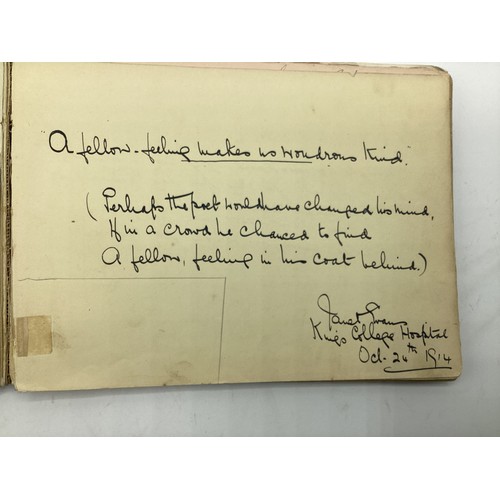 "A fellow-feeling makes us wondrous Kind."
(Perhaps the poet would have changed his mind,
If in a crowd he chanced to find
A fellow, feeling in his coat behind.)
Janet Evans
Kings College Hospital
Oct. 24th 1914